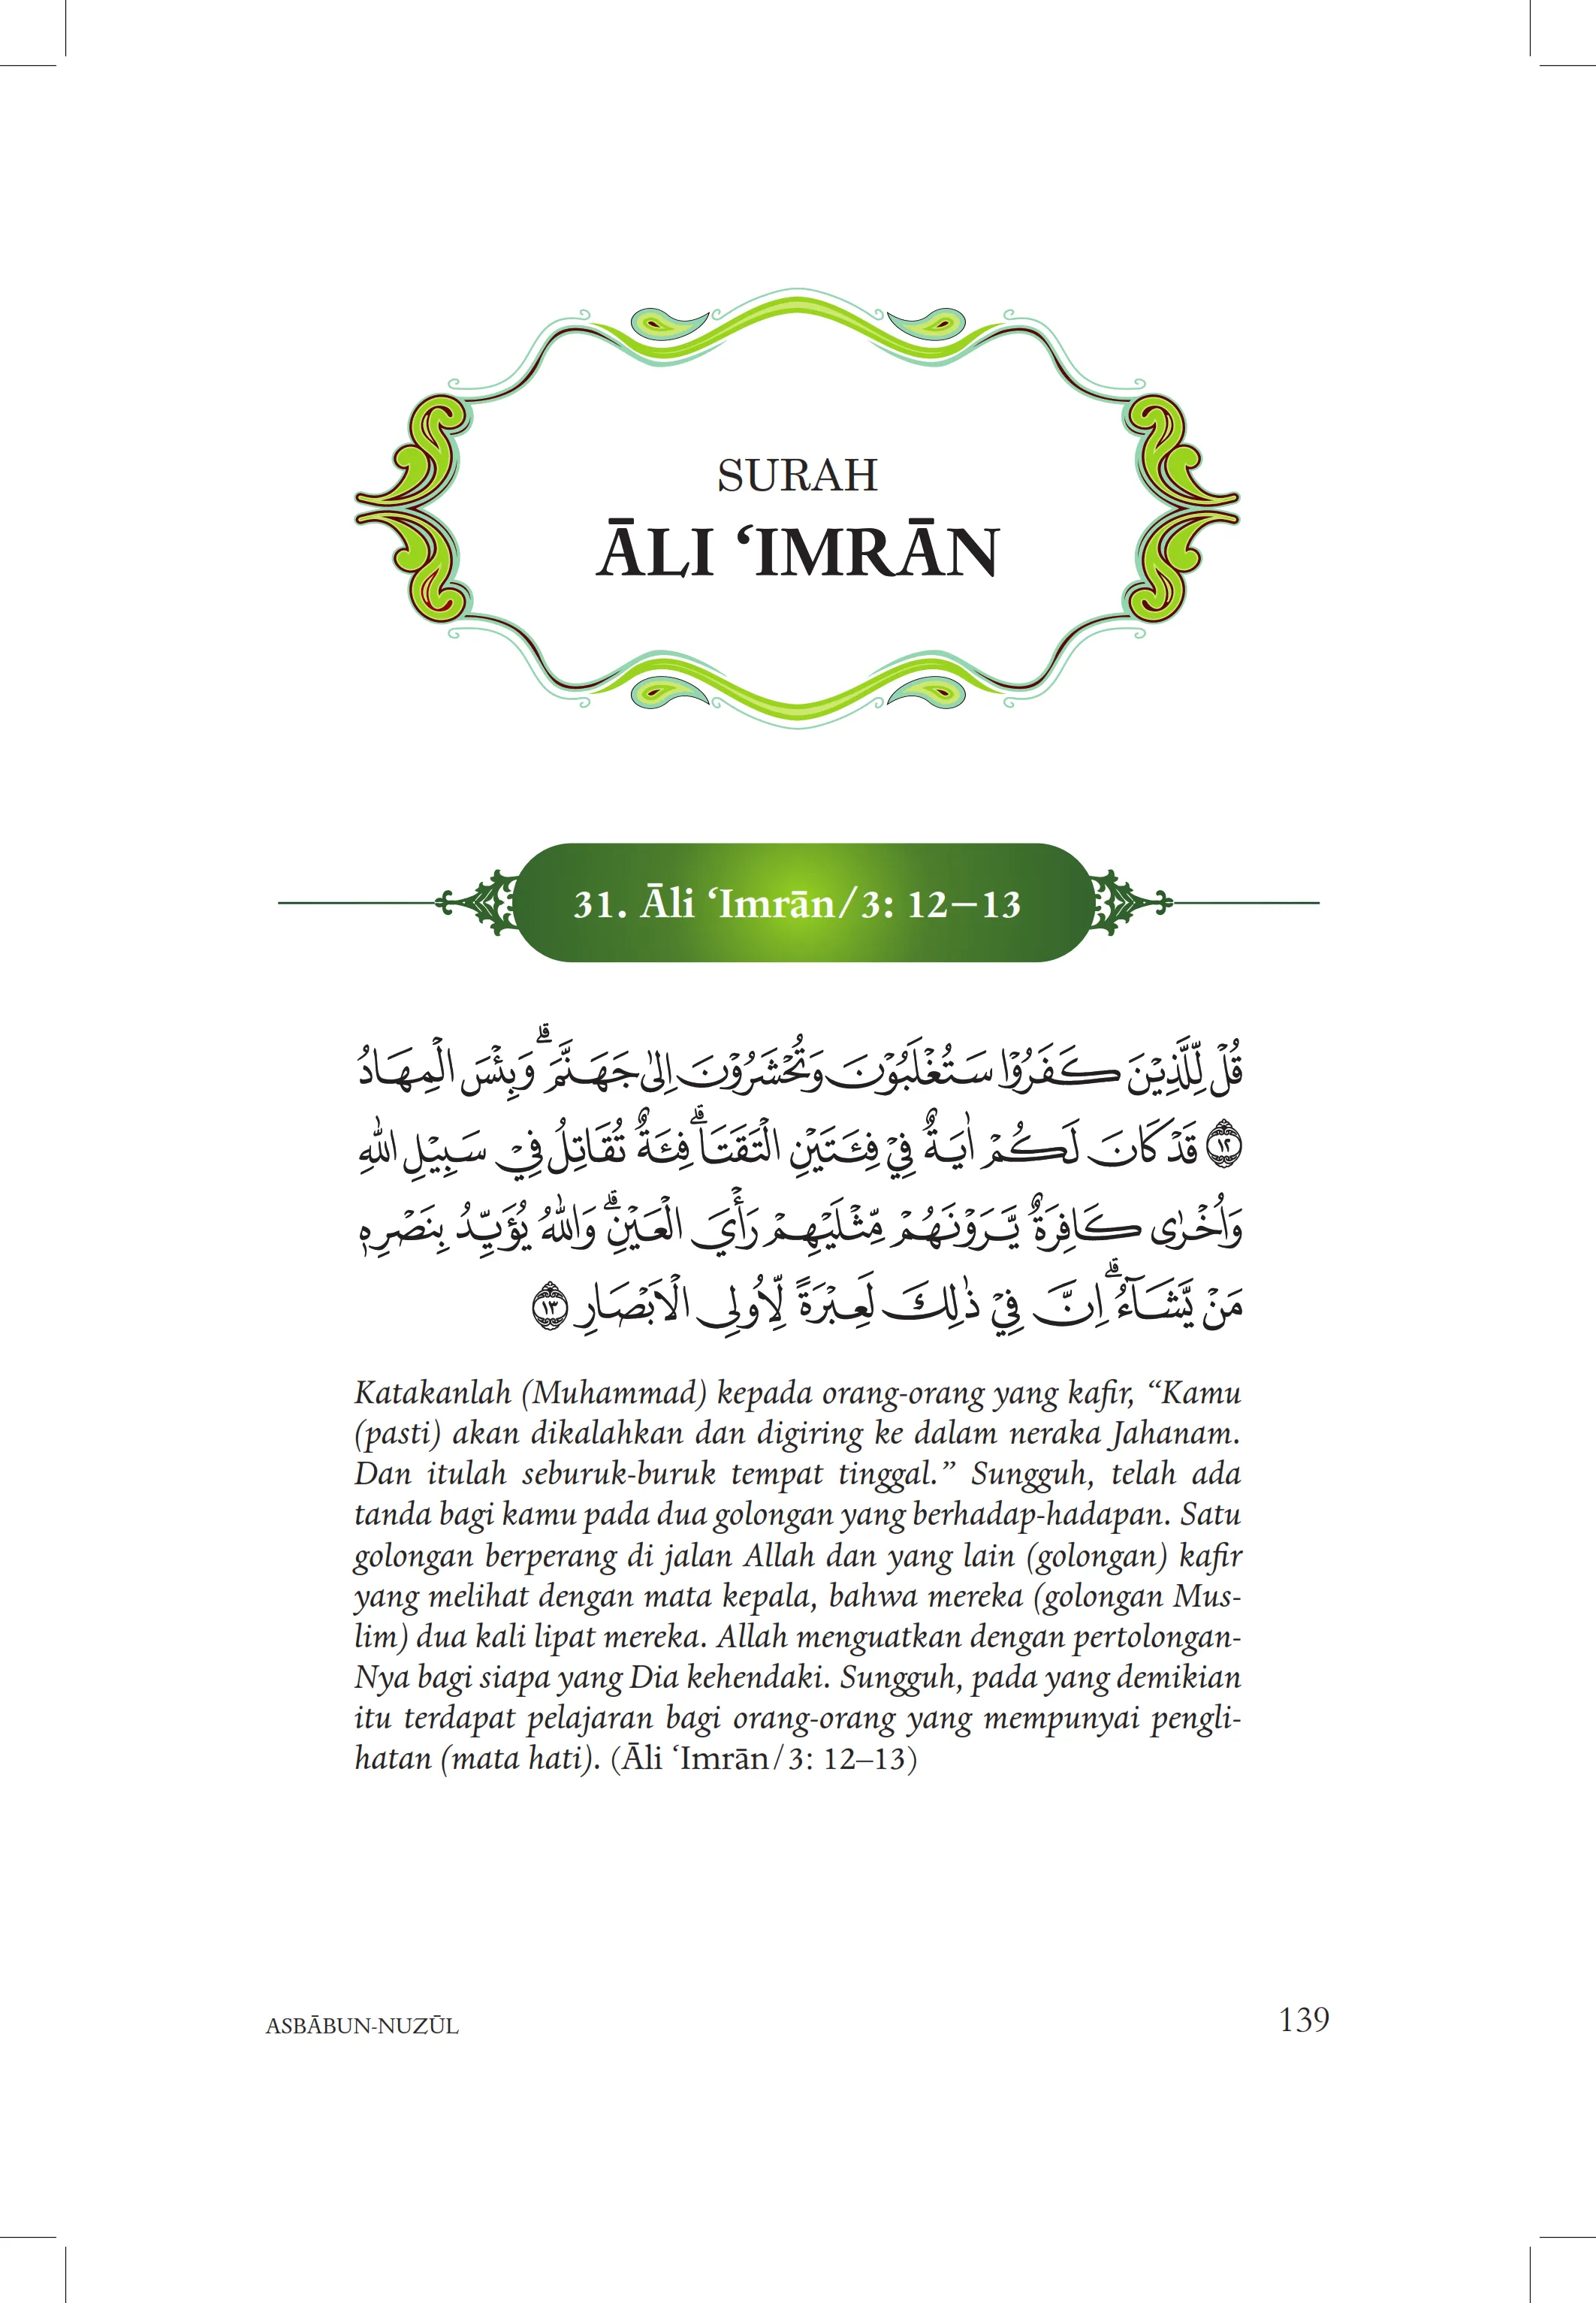 SURAH
ĀLI ‘IMRĀN
31. Āli ‘Imrān/3: 12–13
قُلْ لِّلَّذِيْنَ كَفَرُوْا سَتُغْلَبُوْنَ وَتُحْشَرُوْنَ اِلٰى جَهَنَّمَ ۗ وَبِئْسَ الْمِهَادُ
١٢ قَدْ كَانَ لَكُمْ اٰيَةٌ فِيْ فِئَتَيْنِ الْتَقَتَا ۗ فِئَةٌ تُقَاتِلُ فِيْ سَبِيْلِ اللّٰهِ
وَاُخْرٰى كَافِرَةٌ يَّرَوْنَهُمْ مِّثْلَيْهِمْ رَأْيَ الْعَيْنِ ۗ وَاللّٰهُ يُؤَيِّدُ بِنَصْرِهٖ
مَنْ يَّشَاۤءُ ۗ اِنَّ فِيْ ذٰلِكَ لَعِبْرَةً لِّاُولِى الْاَبْصَارِ ١٣
Katakanlah (Muhammad) kepada orang-orang yang kafir, “Kamu
(pasti) akan dikalahkan dan digiring ke dalam neraka Jahanam.
Dan itulah seburuk-buruk tempat tinggal.” Sungguh, telah ada
tanda bagi kamu pada dua golongan yang berhadap-hadapan. Satu
golongan berperang di jalan Allah dan yang lain (golongan) kafir
yang melihat dengan mata kepala, bahwa mereka (golongan Mus-
lim) dua kali lipat mereka. Allah menguatkan dengan pertolongan-
Nya bagi siapa yang Dia kehendaki. Sungguh, pada yang demikian
itu terdapat pelajaran bagi orang-orang yang mempunyai pengli-
hatan (mata hati). (Āli ‘Imrān/3: 12–13)
ASBĀBUN-NUZŪL
139